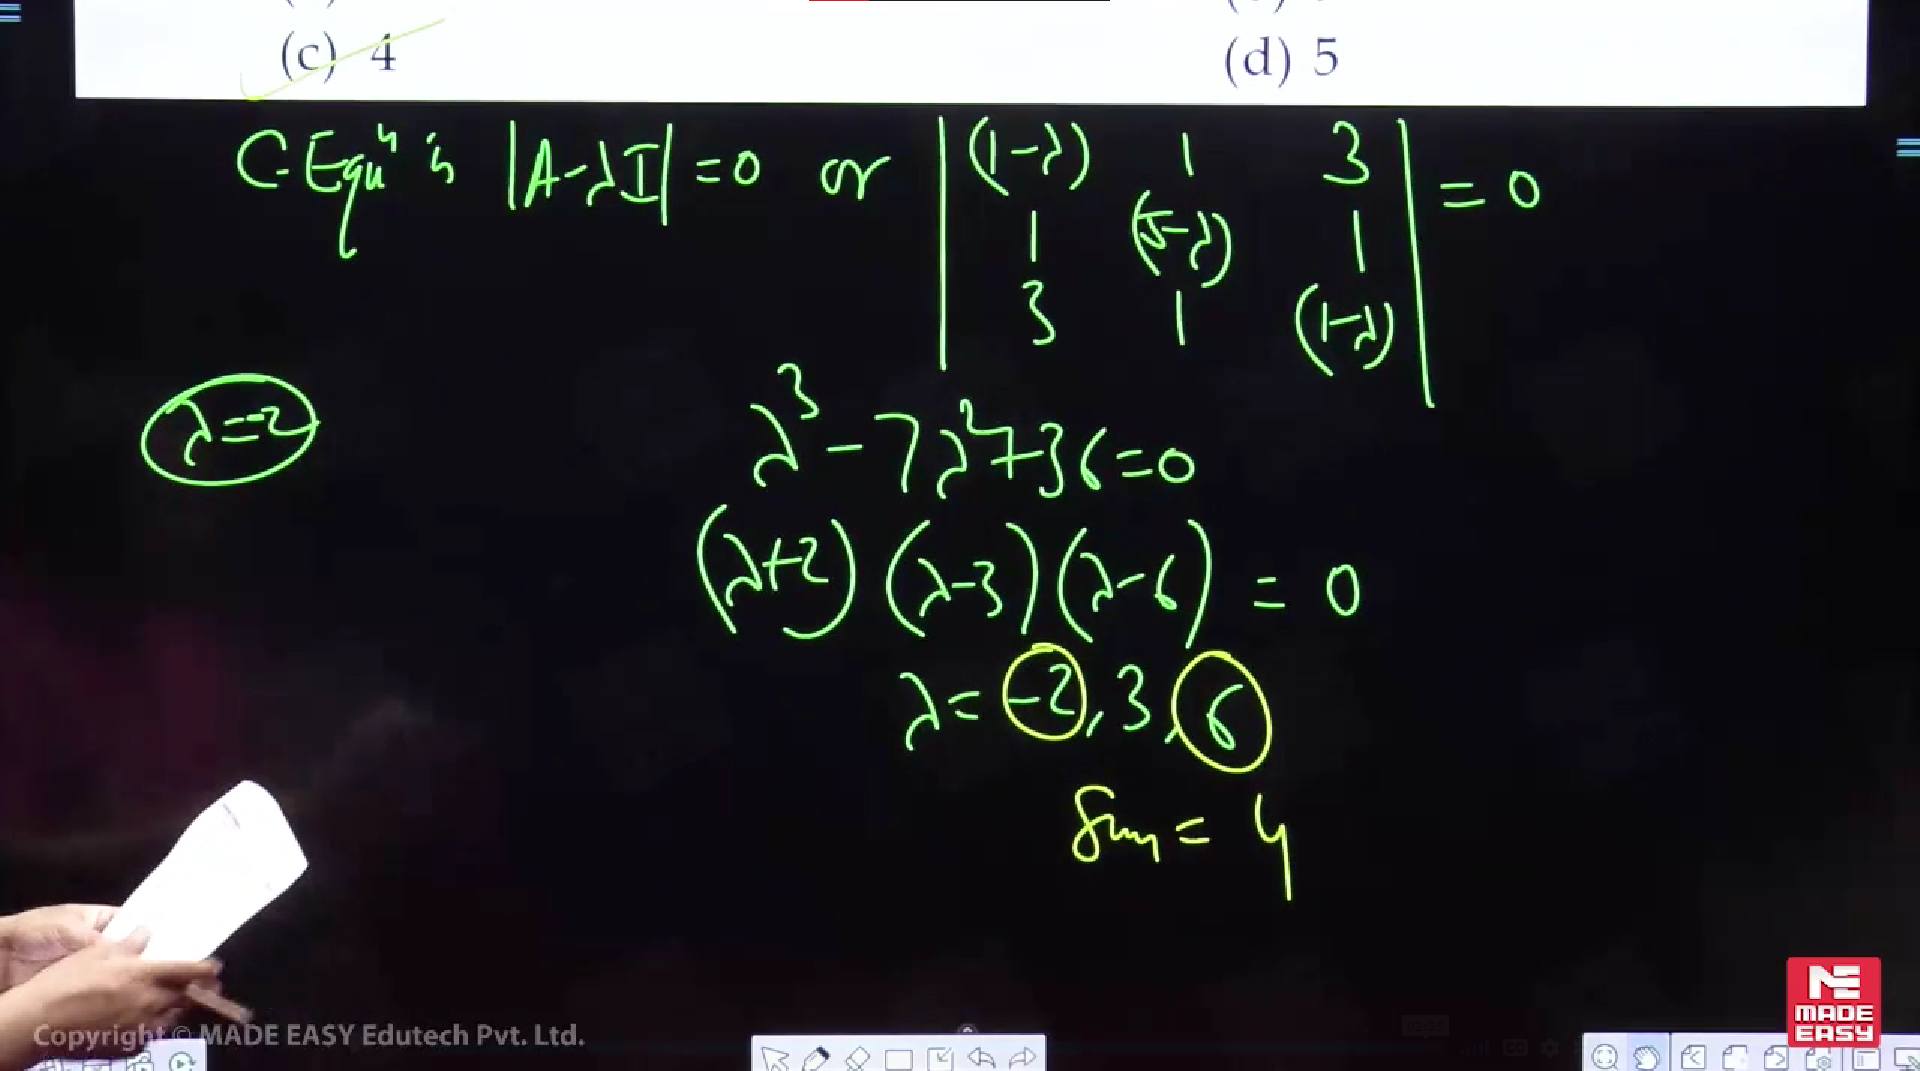 (c) 4
(d) 5
C-Equⁿ is |A-λI| = 0 or | (1-λ) 1 3 | = 0
1 (5-λ) 1
3 1 (1-λ)
λ=-2
λ³ - 7λ² + 36 = 0
(λ+2) (λ-3) (λ-6) = 0
λ = -2, 3, 6
Sum = 4
Copyright © MADE EASY Edutech Pvt. Ltd.
MADE
EASY